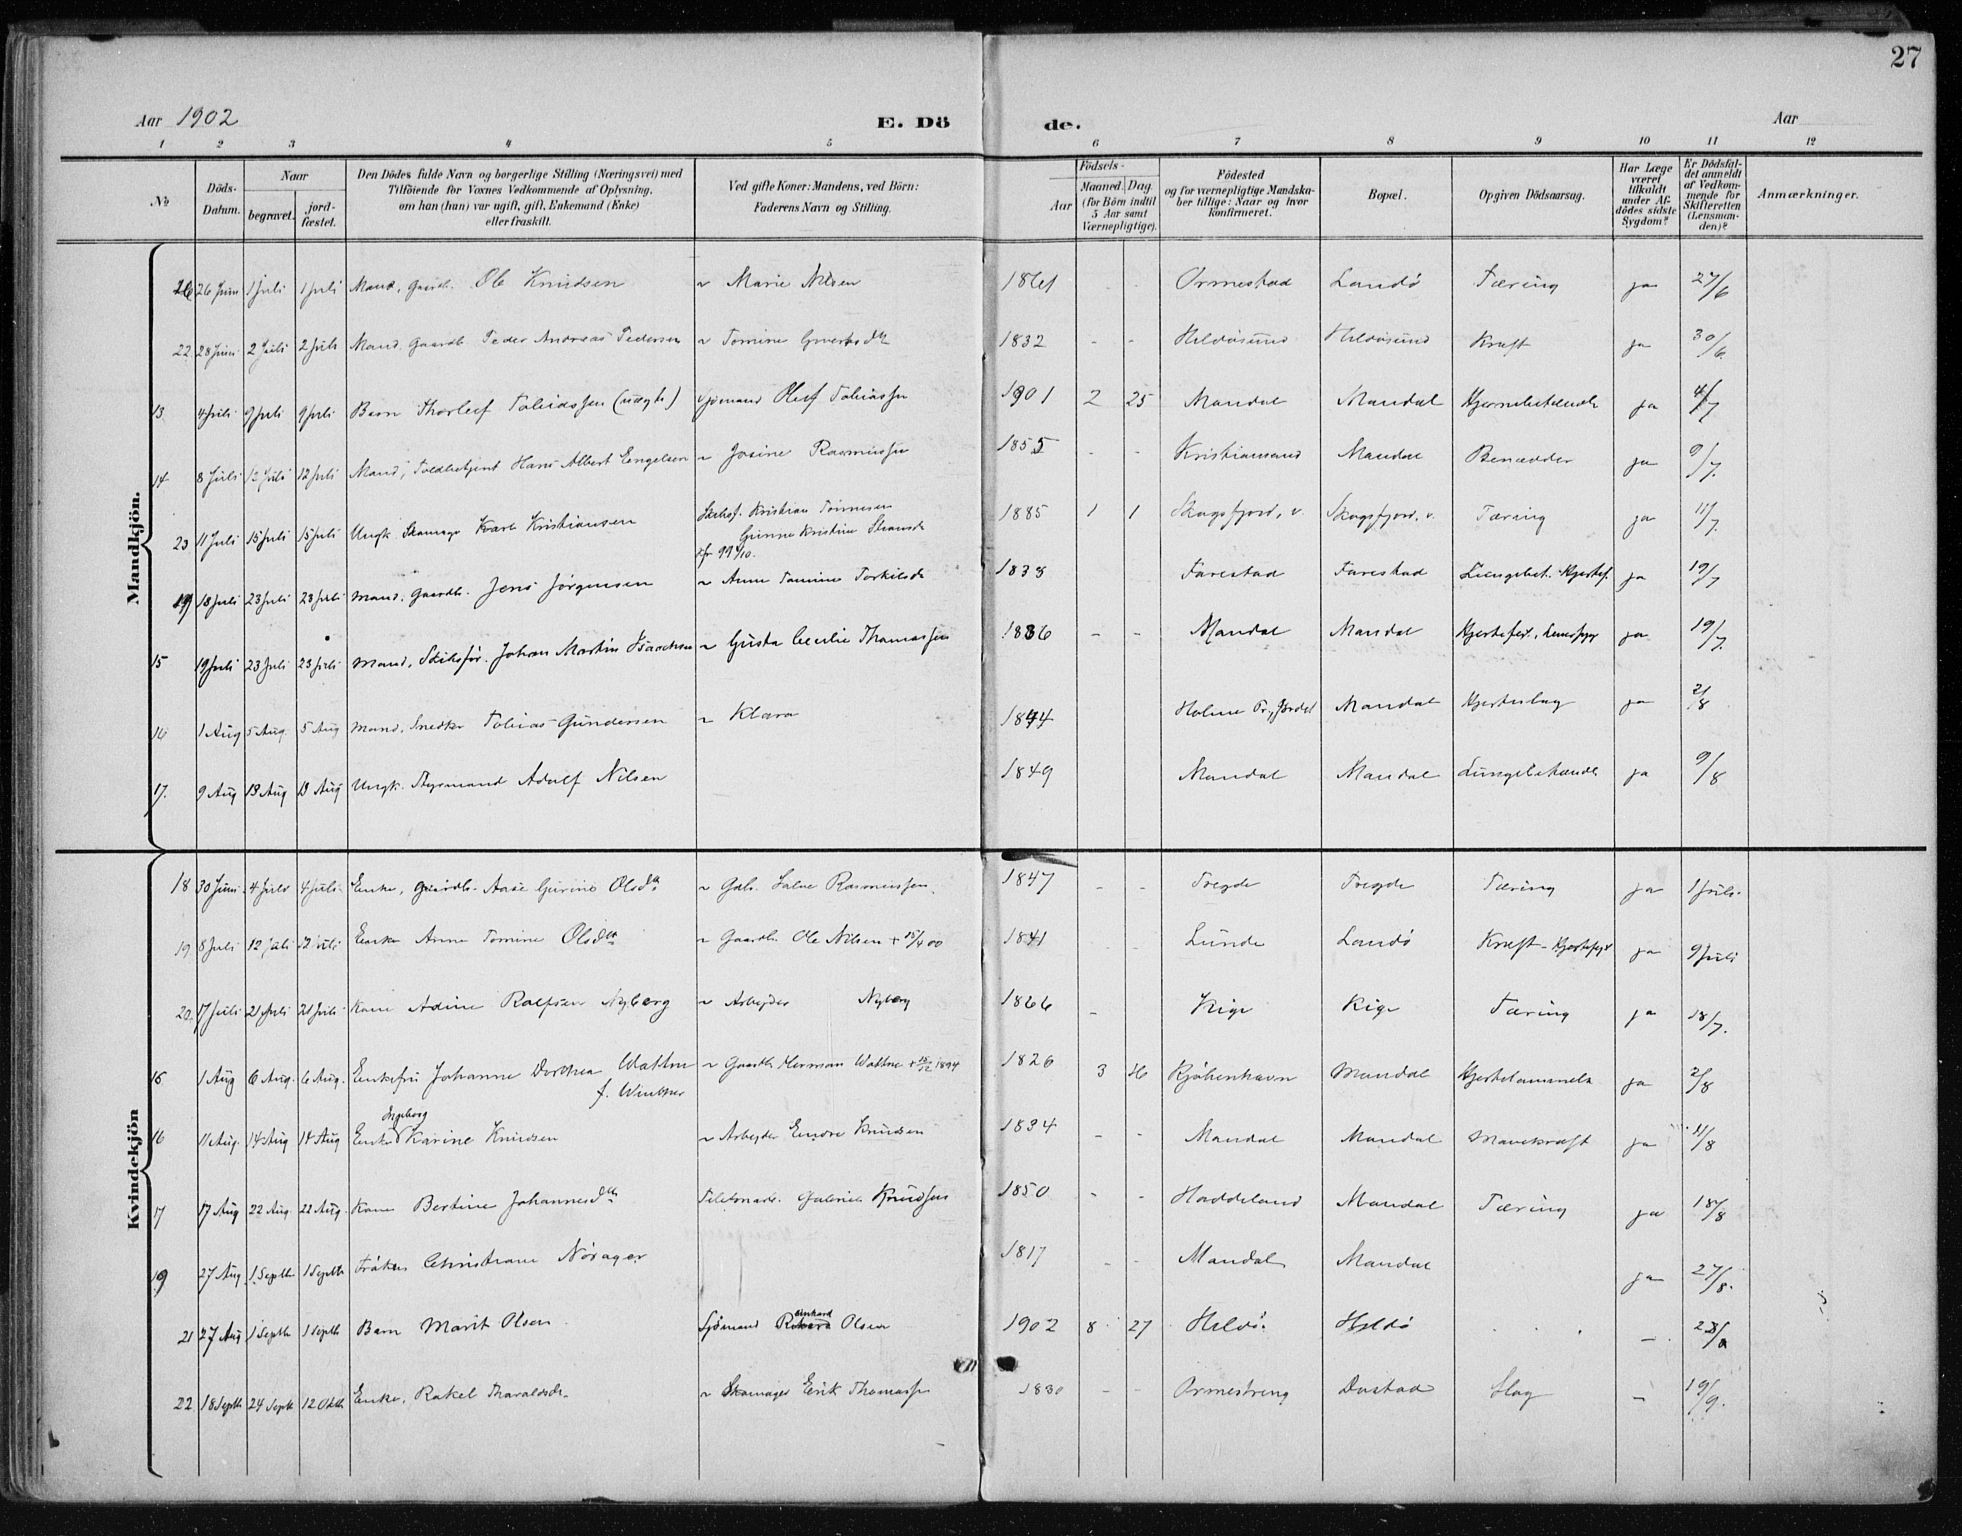 27
Aar 1902 E. Dö de. Aar
1 2 3 4 5 6 7 8 9 10 11 12
№
Döds-Datum.
Naar
begravet.
jord-fæstet.
Den Dödes fulde Navn og borgerlige Stilling (Næringsvei) med
Tilföiende for Voxnes Vedkommende af Oplysning,
om han (hun) var ugift, gift, Enkemand (Enke)
eller fraskilt.
Ved gifte Koner: Mandens, ved Börn:
Faderens Navn og Stilling.
Födsels-
Aar
Maaned. Dag.
(for Börn indtil
5 Aar samt
Værnepligtige).
Födested
og for værnepligtige Mandska-
ber tillige: Naar og hvor
konfirmeret.
Bopæl.
Opgiven Dödsaarsag.
Har Læge
været
tilkaldt
under Af-
dödes sidste
Sygdom?
Er Dödsfal-
det anmeldt
af Vedkom-
mende for
Skifteretten
(Lensman-
den)?
Anmærkninger.
Mandkjön.
26 Juni 1 Juli 1 Juli Mand, Gaardb. Ole Knudsen ~ Marie Nilsen 1861 - - Ormestad Landö Tæring ja 27/6
22 28 Juni 2 Juli 2 Juli Mand. Gaardb. Peder Andreas Pedersen ~ Tomine 1832 - - Hildösund Hildösund Kræft ja 30/6
13 4 Juli 9 Juli 9 Juli Barn Thorleif Tobiassen (uægte) Sjömand Oluf Tobiassen 1901 2 25 Mandal Mandal ja 4/7
14 8 Juli 12 Juli 12 Juli Mand, Toldbetjent Hans Albert Engelsen ~ Josine Rasmussen 1855 - - Kristiansand Mandal Benædder ja 9/7
23 11 Juli 15 Juli 15 Juli Ungk. Skomager Karl Kristiansen Kristian Tönnesen
Gunne Kristine
1885 1 1 Skogsfjord, v. Skogsfjord, v. Tæring ja 11/7
19 18 Juli 23 Juli 23 Juli Mand. Gaardb. Jens Jörgensen ~ Anne Tomine Torkilsdr 1838 Farestad Farestad Lungebet. Hjertef. ja 19/7
15 19 Juli 23 Juli 23 Juli Mand, Skibsför. Johan Martin Isaachsen ~ Gusta Cecilie Thomassen 1836 - - Mandal Mandal ja 19/7
1 Aug 5 Aug 5 Aug Mand, Snedker Tobias Gundersen ~ Klara 1844 Holme Mandal Hjerteslag ja 2/8
17. 9 Aug 13 Aug 13 Aug Ungk. Styrmand Adolf Nilsen 1849 Mandal Mandal Lungebetænd. ja 9/8
Kvindekjön
18 30 Juni 4 Juli 4 Juli Enke, Gaardb. Aase Gurine Olsdtr ~ Gdb. Salve Rasmussen 1847 - - Tregde Tregde Tæring ja 1 Juli.
19 8 Juli 12 Juli 12 Juli Enke Anne Tomine Olsdtr ~ Gaardb. Ole Nilsen + 15/4 00 1841 Lunde Landö Kræft ja 9 Juli
20 17 Juli 21 Juli 21 Juli Kone Adine Rolfsen Nyberg ~ Arbejder Nyberg 1866 - Kige Kige Tæring ja 18/7.
15 1 Aug 6 Aug. 6 Aug. Enkefru Johanne Dorthea Wattne
f. Winther
~ Gaardb. Herman Wattne 1894 1826 3 26 Kjöbenhavn Mandal ja 2/8
16 11 Aug. 14 Aug 14 Aug Enke Ingeborg Karine Knudsen ~ Arbejder Endre Knudsen 1834 - - Mandal Mandal Mavekræft ja 11/8
17 17 Aug 22 Aug. 22 Aug. Kone Bertine Johannesdtr Gabriel Knudsen 1850 - - Haddeland Mandal Tæring ja 18/8
19 27 Aug 1 Septbr 1 Septbr Fröken Christiane Nörager 1817 - - Mandal Mandal ja 27/8.
21 27 Aug 1 Septbr 1 Septbr Barn Marit Olsen Sjömand Olsen 1902 8 27 Hildö Hildö - 28/8
22 18 Septbr 24 Septb 12 Oktbr Enke, Rakel Tharaldsdr. ~ Skomager Erik Thomassen 1830 - - Ormestreng Dostad Slag - 19/9.